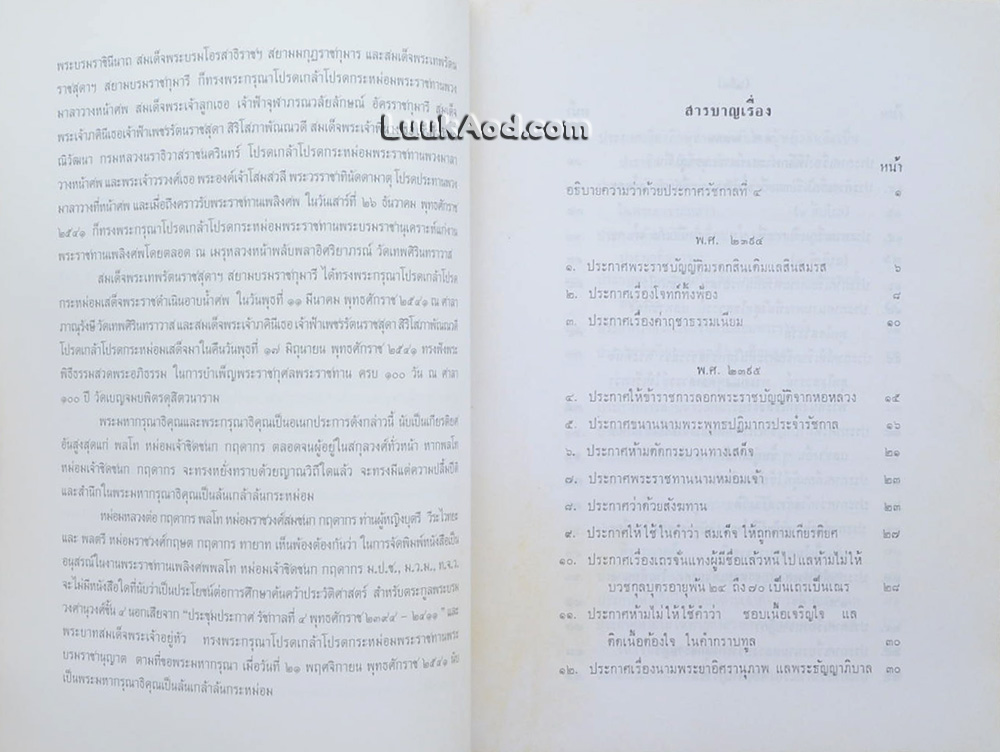 พระบรมราชินีนาถ สมเด็จพระบรมโอรสาธิราชฯ สยามมกุฎราชกุมาร และสมเด็จพระเทพรัตน
ราชสุดาฯ สยามบรมราชกุมารี ก็ทรงพระกรุณาโปรดเกล้าโปรดกระหม่อมพระราชทานพวง
มาลาวางหน้าศพ สมเด็จพระเจ้าลูกเธอ เจ้าฟ้าจุฬาภรณวลัยลักษณ์ อัครราชกุมารี สมเด็จ
พระเจ้าภคินีเธอเจ้าฟ้าเพชรรัตนราชสุดา สิริโสภาพัณณวดี สมเด็จพระเจ้า
ณิวัฒนา กรมหลวงนราธิวาสราชนครินทร์ โปรดเกล้าโปรดกระหม่อมพระราชทานพวงมาลา
วางหน้าศพ และพระเจ้าวรวงศ์เธอ พระองค์เจ้าโสมสวลี พระวรราชาทินัดดามาตุ โปรดประทานพวง
มาลาวางที่หน้าศพ และเมื่อถึงคราวรับพระราชทานเพลิงศพ ในวันเสาร์ที่ ๒๖ ธันวาคม พุทธศักราช
๒๕๔๑ ก็ทรงพระกรุณาโปรดเกล้าโปรดกระหม่อมพระราชทานพระบรมราชานุเคราะห์แก่งาน
พระราชทานเพลิงศพโดยตลอด ณ เมรุหลวงหน้าพลับพลาอิศริยาภรณ์ วัดเทพศิรินทราวาส
สมเด็จพระเทพรัตนราชสุดาฯ สยามบรมราชกุมารี ได้ทรงพระกรุณาโปรดเกล้าโปรด
กระหม่อมเสด็จพระราชดำเนินอาบน้ำศพ ในวันพุธที่ ๑๑ มีนาคม พุทธศักราช ๒๕๔๑ ณ ศาลา
ภาณุรังษี วัดเทพศิรินทราวาส และสมเด็จพระเจ้าภคินีเธอ เจ้าฟ้าเพชรรัตนราชสุดา สิริโสภาพัณณวดี
โปรดเกล้าโปรดกระหม่อมเสด็จมาในคืนวันพุธที่ ๑๗ มิถุนายน พุทธศักราช ๒๕๔๑ ทรงฟังพระ
พิธีธรรมสวดพระอภิธรรม ในการบำเพ็ญพระราชกุศลพระราชทาน ครบ ๑๐๐ วัน ณ ศาลา
๑๐๐ ปี วัดเบญจมบพิตรดุสิตวนาราม
พระมหากรุณาธิคุณและพระกรุณาธิคุณเป็นอเนกประการดังกล่าวนี้ นับเป็นเกียรติยศ
อันสูงสุดแก่ พลโท หม่อมเจ้าชิดชนก กฤดากร ตลอดจนผู้อยู่ในสกุลวงศ์ทั่วหน้า หากพลโท
หม่อมเจ้าชิดชนก กฤดากร จะทรงหยั่งทราบด้วยญาณวิถีใดแล้ว จะทรงมีแต่ความปลื้มปีติ
และสำนึกในพระมหากรุณาธิคุณเป็นล้นเกล้าล้นกระหม่อม
หม่อมหลวงต่อ กฤดากร พลโท หม่อมราชวงศ์สมชนก กฤดากร ท่านผู้หญิงบุตรี วีระไวทยะ
และ พลตรี หม่อมราชวงศ์กฤษต กฤดากร ทายาท เห็นพ้องต้องกันว่า ในการจัดพิมพ์หนังสือเป็น
อนุสรณ์ในงานพระราชทานเพลิงศพพลโท หม่อมเจ้าชิดชนก กฤดากร ม.ป.ช., ม.ว.ม., ท.จ.ว.
จะไม่มีหนังสือใดที่นับว่าเป็นประโยชน์ต่อการศึกษาค้นคว้าประวัติศาสตร์ สำหรับตระกูลพระบรม
วงศานุวงศ์ชั้น ๔ นอกเสียจาก "ประชุมประกาศ รัชกาลที่ ๔ พุทธศักราช ๒๓๙๔ – ๒๔๑๑" และ
พระบาทสมเด็จพระเจ้าอยู่หัว ทรงพระกรุณาโปรดเกล้าโปรดกระหม่อมพระราชทานพระ
บรมราชานุญาต ตามที่ขอพระมหากรุณา เมื่อวันที่ ๒๑ พฤศจิกายน พุทธศักราช ๒๕๔๑ นับ
เป็นพระมหากรุณาธิคุณเป็นล้นเกล้าล้นกระหม่อม
LuukAod.com
สารบาญเรื่อง
หน้า
อธิบายความว่าด้วยประกาศรัชกาลที่ ๔ ๑
พ.ศ. ๒๓๙๔
๑. ประกาศพระราชบัญญัติมรดกสินเดิมแลสินสมรส ๖
๒. ประกาศเรื่องโจทก์ทิ้งฟ้อง ๘
๓. ประกาศเรื่องค่าฤชาธรรมเนียม ๑๐
พ.ศ. ๒๓๙๕
๔. ประกาศให้ข้าราชการลอกพระราชบัญญัติจากหอหลวง ๑๕
๕. ประกาศขนานนามพระพุทธปฏิมากรประจำรัชกาล ๑๖
๖. ประกาศห้ามตัดกระบวนทางเสด็จ ๒๑
๗. ประกาศพระราชทานนามหม่อมเจ้า ๒๓
๘. ประกาศว่าด้วยสังฆทาน ๒๓
๙. ประกาศให้ใช้ในคำว่า สมเด็จ ให้ถูกตามเกียรติยศ ๒๗
๑๐. ประกาศเรื่องเถรจั่นแทงผู้มีชื่อแล้วหนีไป แลห้ามไม่ให้
บวชกุลบุตรอายุพ้น ๒๔ ถึง ๗๐ เป็นเถรเป็นเณร ๒๘
๑๑. ประกาศห้ามไม่ให้ใช้คำว่า ชอบเนื้อเจริญใจ แล
ติดเนื้อต้องใจ ในคำกราบทูล ๓๐
๑๒. ประกาศเรื่องนามพระยาอิศรานุภาพ แลพระธัญญาภิบาล ๓๐